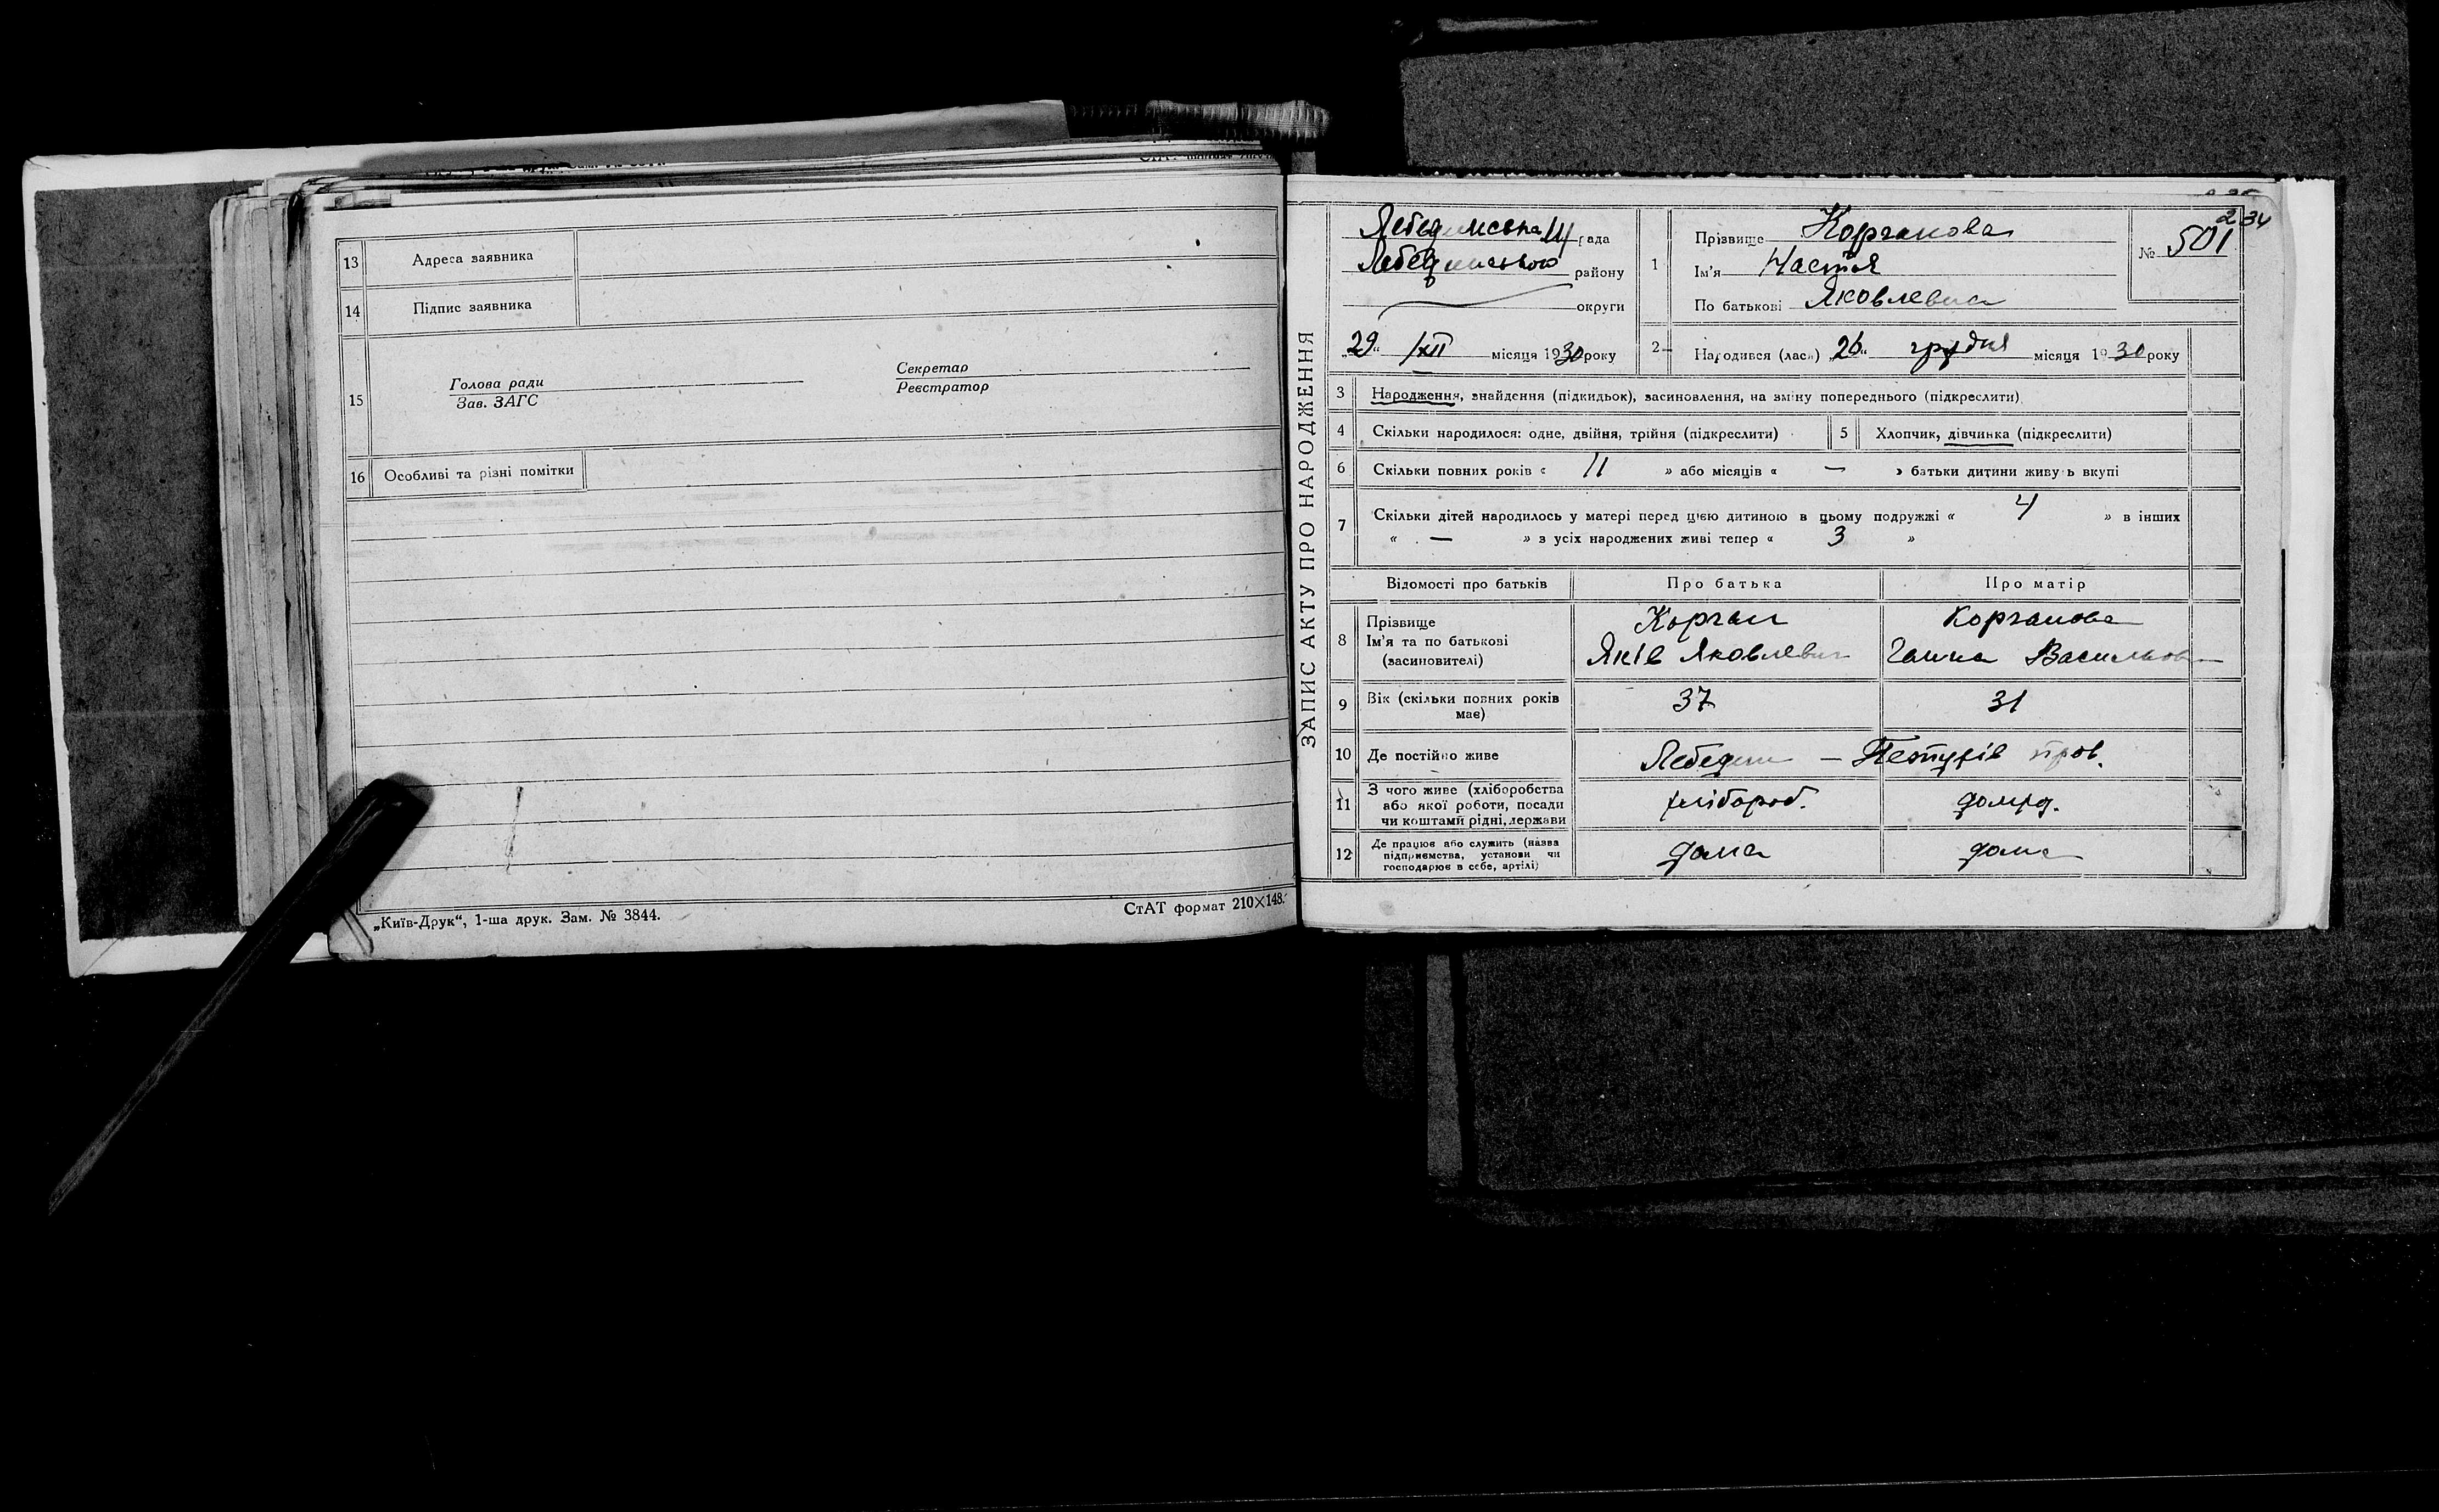 13 Адреса заявника
14 Підпис заявника
15 Голова ради
Зав. ЗАГС
Секретар
Реєстратор
16 Особливі та різні помітки
„Київ-Друк“, 1-ша друк. Зам. № 3844.
СтАТ формат 210×148.
ЗАПИС АКТУ ПРО НАРОДЖЕННЯ
234
Лебединська рада
Лебединського району
округи
„29“ /XII місяця 1930 року
1 Прізвище Корчанова
Ім'я Настя
По батькові Яковлевна
№ 501
2 Народився (лась) „26“ грудня місяця 1930 року
3 Народження, знайдення (підкидьок), засиновлення, на зміну попереднього (підкреслити)
4 Скільки народилося: одне, двійня, трійня (підкреслити) 5 Хлопчик, дівчинка (підкреслити)
6 Скільки повних років « 11 » або місяців « — » батьки дитини живуть вкупі
7 Скільки дітей народилось у матері перед цією дитиною в цьому подружжі « 4 » в інших
« — » з усіх народжених живі тепер « 3 »
Відомості про батьків Про батька Про матір
8 Прізвище Корчан Корчанова
Ім'я та по батькові Яків Яковлевич Ганна Васильов
(засиновителі)
9 Вік (скільки повних років має) 37 31
10 Де постійно живе Лебедин — пров.
11 З чого живе (хліборобства
або якої роботи, посади хлібороб. домрд.
чи коштами рідні, держави
12 Де працює або служить (назва
підприємства, установи чи дома дома
господарює в себе, артілі)